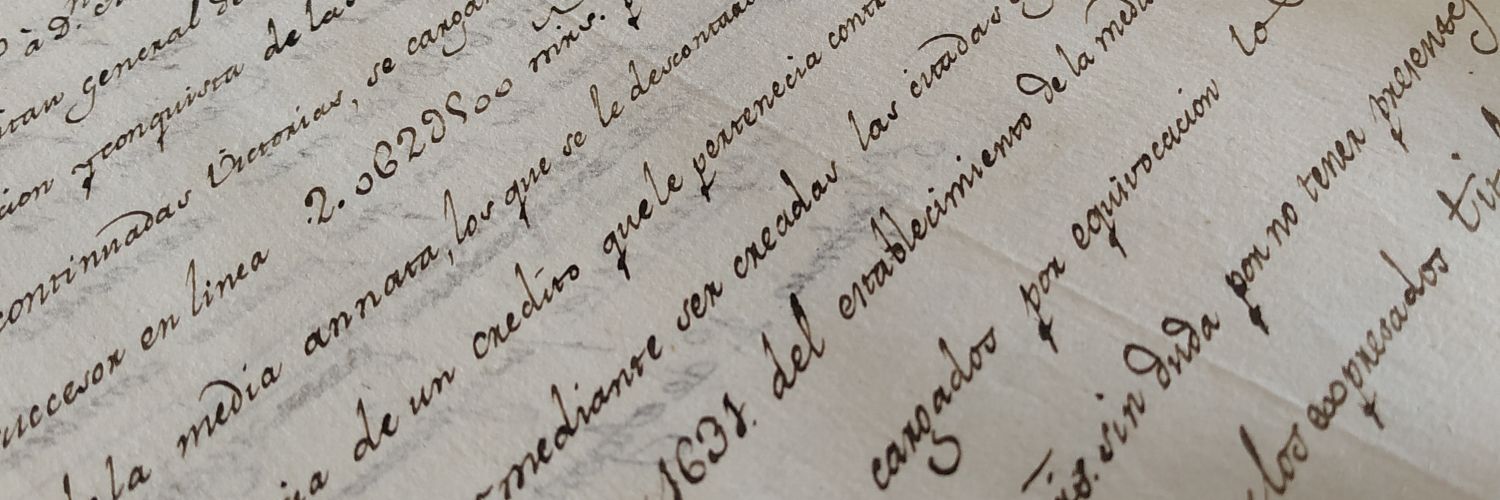 à D.
general
conquista de las
continuadas Victorias, se cargar
successor en linea 2.062D500 mrs.
la media annata, los que se le descontar
de un credito que le pertenecia contr
mediante ser creadas las citadas
1631. del establecimiento de la med
cargados por equivocacion lo
sin duda por no tener presente
los expresados